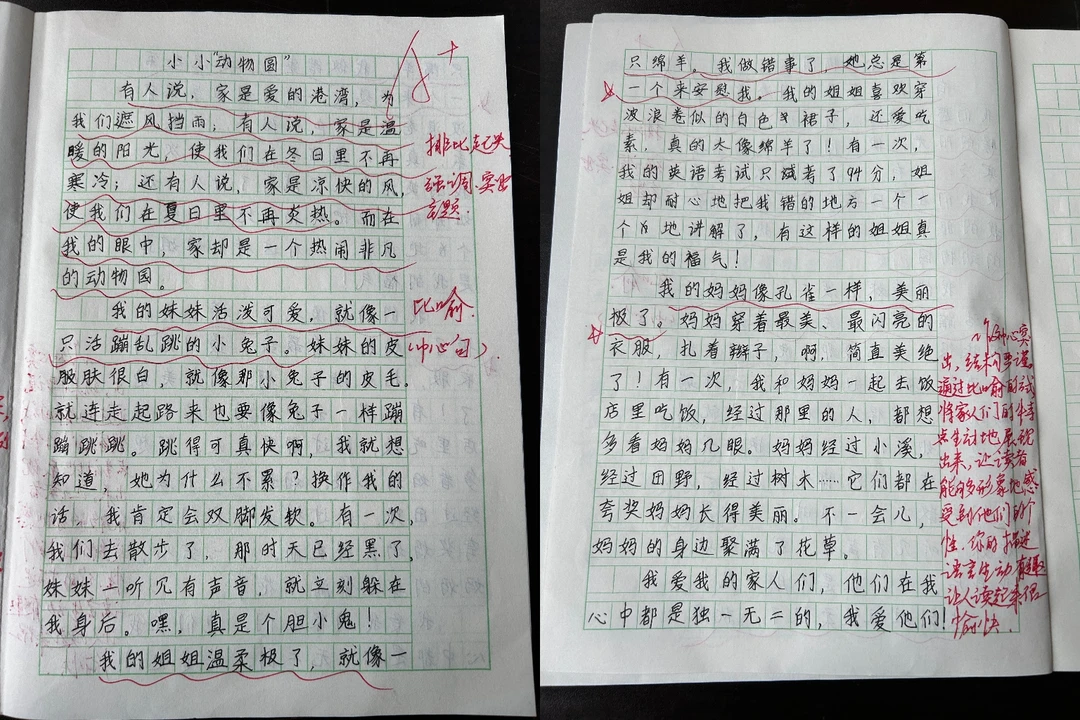 小小"动物园"
有人说，家是爱的港湾，为
我们遮风挡雨；有人说，家是温
暖的阳光，使我们在冬日里不再
寒冷；还有人说，家是凉快的风，
使我们在夏日里不再炎热。而在
我的眼中，家却是一个热闹非凡
的动物园。
我的妹妹活泼可爱，就像一
只活蹦乱跳的小兔子。妹妹的皮
服肤很白，就像那小兔子的皮毛。
就连走起路来也要像兔子一样蹦
蹦跳跳。跳得可真快啊，我就想
知道，她为什么不累？换作我的
话，我肯定会双脚发软。有一次，
我们去散步了，那时天已经黑了，
妹妹一听见有声音，就立刻躲在
我身后。嘿，真是个胆小鬼！
我的姐姐温柔极了，就像一
排比起头
强调
主题
比喻
（中心句）
只绵羊。我做错事了，她总是第
一个来安慰我。我的姐姐喜欢穿
波浪卷似的白色裙子，还爱吃
素，真的太像绵羊了！有一次，
我的英语考试只考了94分，姐
姐却耐心地把我错的地方一个一
个地讲解了，有这样的姐姐真
是我的福气！
我的妈妈像孔雀一样，美丽
极了。妈妈穿着最美、最闪亮的
衣服，扎着辫子，啊，简直美绝
了！有一次，我和妈妈一起去饭
店里吃饭，经过那里的人，都想
多看妈妈几眼。妈妈经过小溪，
经过田野，经过树木……它们都在
夸奖妈妈长得美丽。不一会儿，
妈妈的身边聚满了花草。
我爱我的家人们，他们在我
心中都是独一无二的，我爱他们！
中心突
出，结构严谨
通过比喻的方式
将家人们的特
点生动地展现
出来，让读者
能够形象地感
受到他们的个
性，你的描述
语言生动有趣
让人读起来很
愉快.